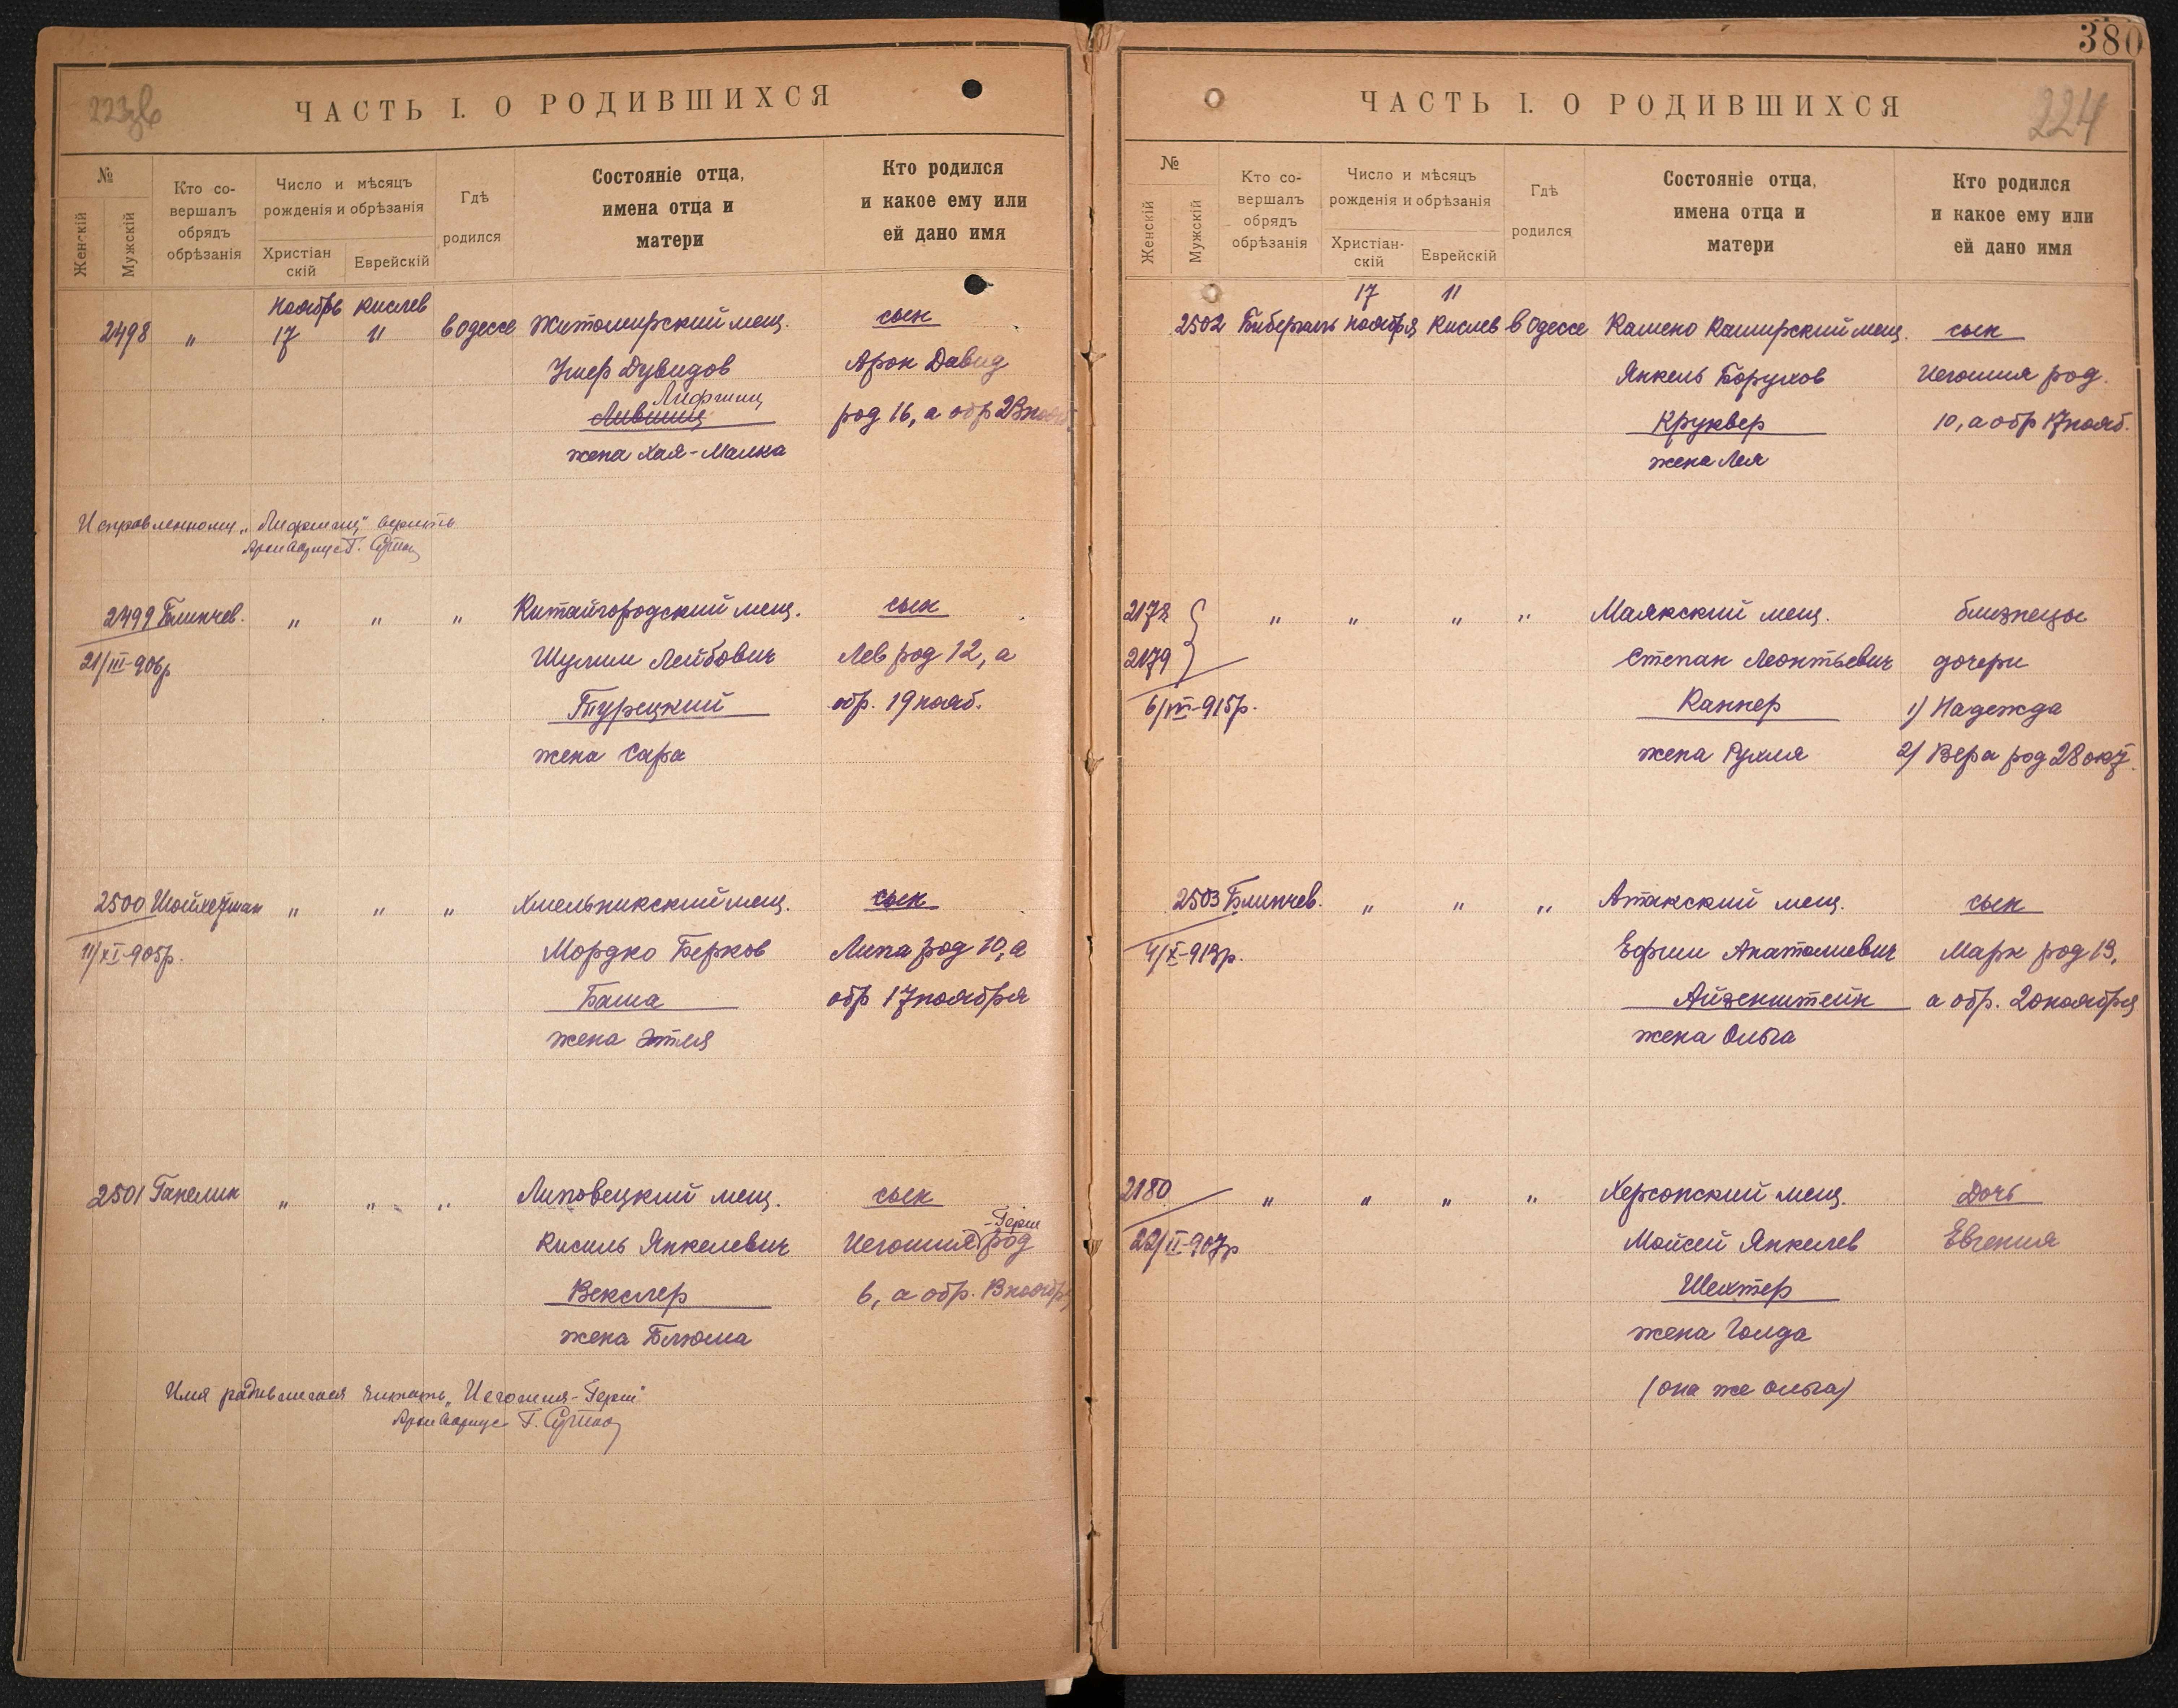 223об
ЧАСТЬ I. О РОДИВШИХСЯ
№
Женскій
Мужскій
Кто со-
вершалъ
обрядъ
обрѣзанія
Число и мѣсяцъ
рожденія и обрѣзанія
Христіан
скій
Еврейскій
Гдѣ
родился
Состояніе отца,
имена отца и
матери
Кто родился
и какое ему или
ей дано имя
2498 " Ноябрь 17 Кислев 11 в Одессе Житомирский мещ. сын
Ушер Дувидов Арон Давид
Лифшиц
Лившиц род 16, а обр 23 нояб.
жена Хая-Малка
Исправленному „Лифшиц" верить
Архивариус Г.
2499 Блинчев. " " " Китайгородский мещ. сын
21/III-906р Шулим Лейбович Лев род 12, а
Турецкий обр. 19 нояб.
жена Сара
2500 Шойхетман " " " Хмельникский мещ. сын
11/XI-905р. Мордко Берков Липа род 10, а
Баша обр 17 ноября
жена Этля
2501 Ганелин " " " Липовецкий мещ. сын
-Герш
Кисиль Янкелевич Иегошия род
Векслер 6, а обр. 13 ноября
жена Блюма
Имя родившегося читать „Иегошия-Герш"
Архивариус Г.
380
ЧАСТЬ I. О РОДИВШИХСЯ
224
№
Женскій
Мужскій
Кто со-
вершалъ
обрядъ
обрѣзанія
Число и мѣсяцъ
рожденія и обрѣзанія
Христіан-
скій
Еврейскій
Гдѣ
родился
Состояніе отца,
имена отца и
матери
Кто родился
и какое ему или
ей дано имя
17 11
2502 Бибергаль ноября Кислев в Одессе Камено Каширский мещ. сын
Янкель Борухов Иегошия род.
Круквер 10, а обр 17 нояб.
жена Лея
2178 " " " " Маякский мещ. близнецы
2179 Степан Леонтьевич дочери
6/VII-915р. Каннер 1) Надежда
жена Рухля 2) Вера род 28 окт.
2503 Блинчев. " " " Атакский мещ. сын
4/X-913р. Ефим Анатолиевич Марк род 13,
Айзенштейн а обр. 20 ноября
жена Ольга
2180 " " " " Херсонский мещ. Дочь
22/II-907р Мойсей Янкелев Евгения
Шехтер
жена Голда
(она же Ольга)